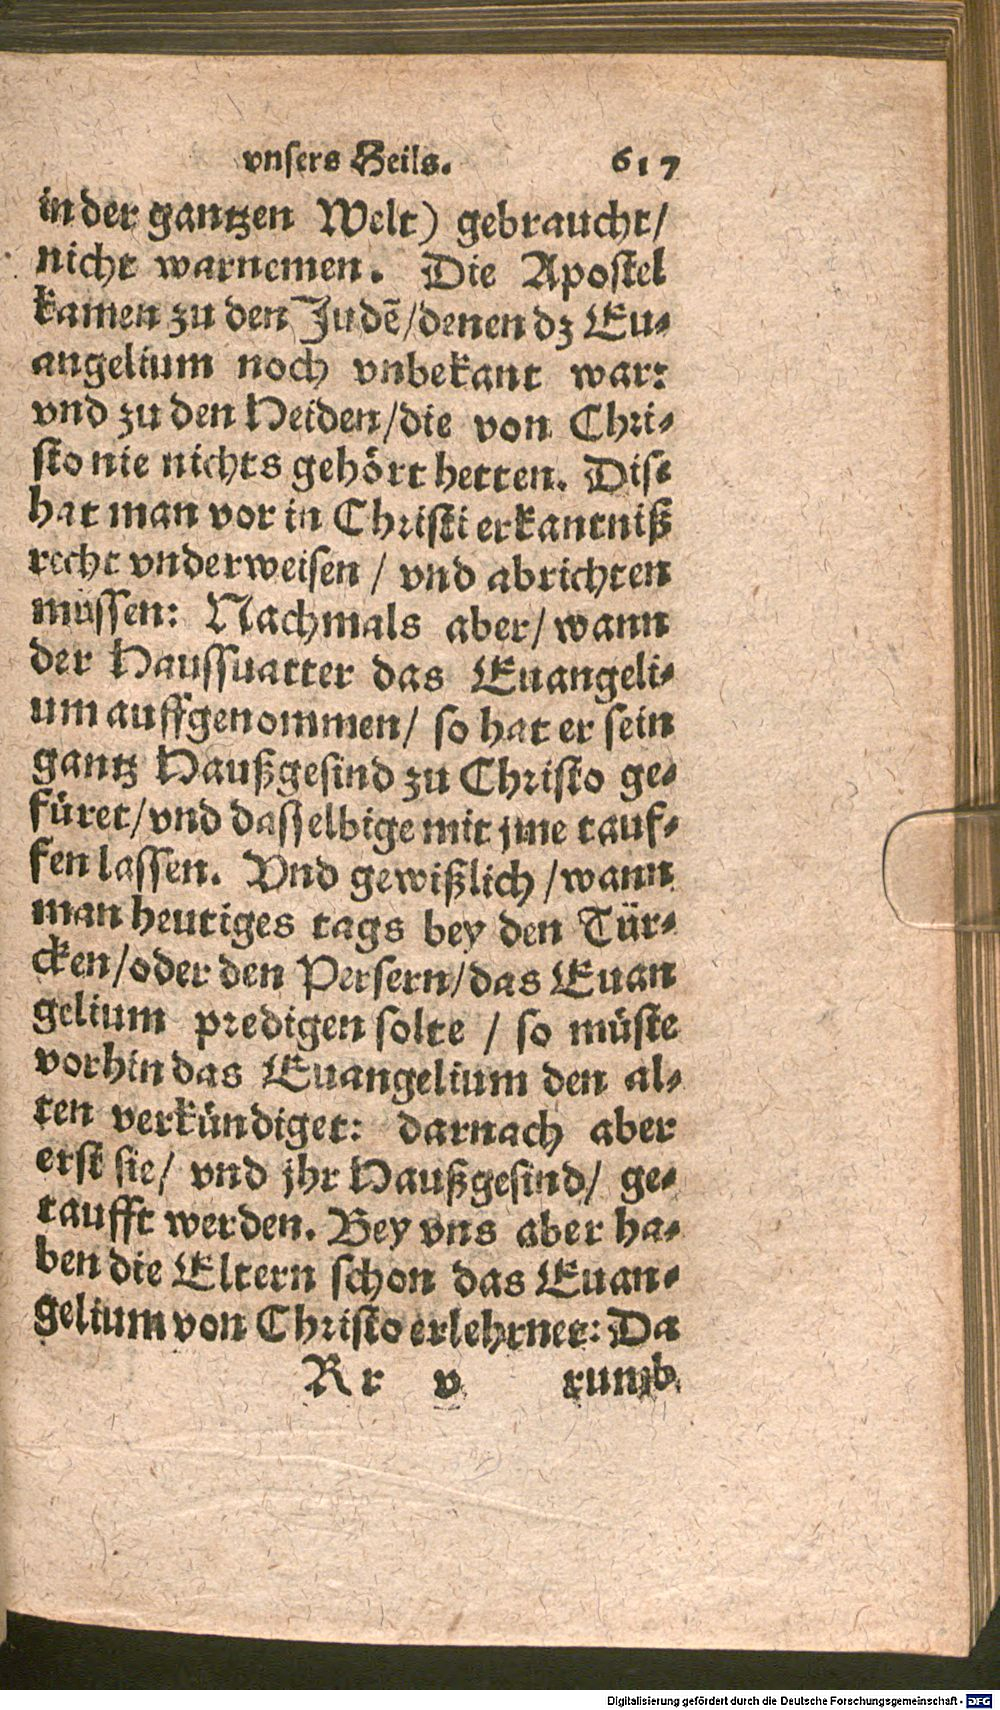 vnsers Heils. 617
in der gantzen Welt) gebraucht/
nicht warnemen. Die Apostel
kamen zu den Judẽ/denen dz Eu-
angelium noch vnbekant war:
vnd zu den Heiden/die von Chri-
sto nie nichts gehört hetten. Dise
hat man vor in Christi erkantniß
recht vnderweisen / vnd abrichten
müssen: Nachmals aber/ wann
der Haussuatter das Euangeli-
um auffgenommen/ so hat er sein
gantz Haußgesind zu Christo ge-
füret/vnd dasselbige mit jme tauf-
fen lassen. Vnd gewißlich /wann
man heutiges tags bey den Tür-
cken/oder den Persern/das Euan
gelium predigen solte / so müste
vorhin das Euangelium den al-
ten verkündiget: darnach aber
erst sie/ vnd jhr Haußgesind/ ge-
taufft werden. Bey vns aber ha-
ben die Eltern schon das Euan-
gelium von Christo erlehrnet: Da
Rr v rumb
Digitalisierung gefördert durch die Deutsche Forschungsgemeinschaft - DFG